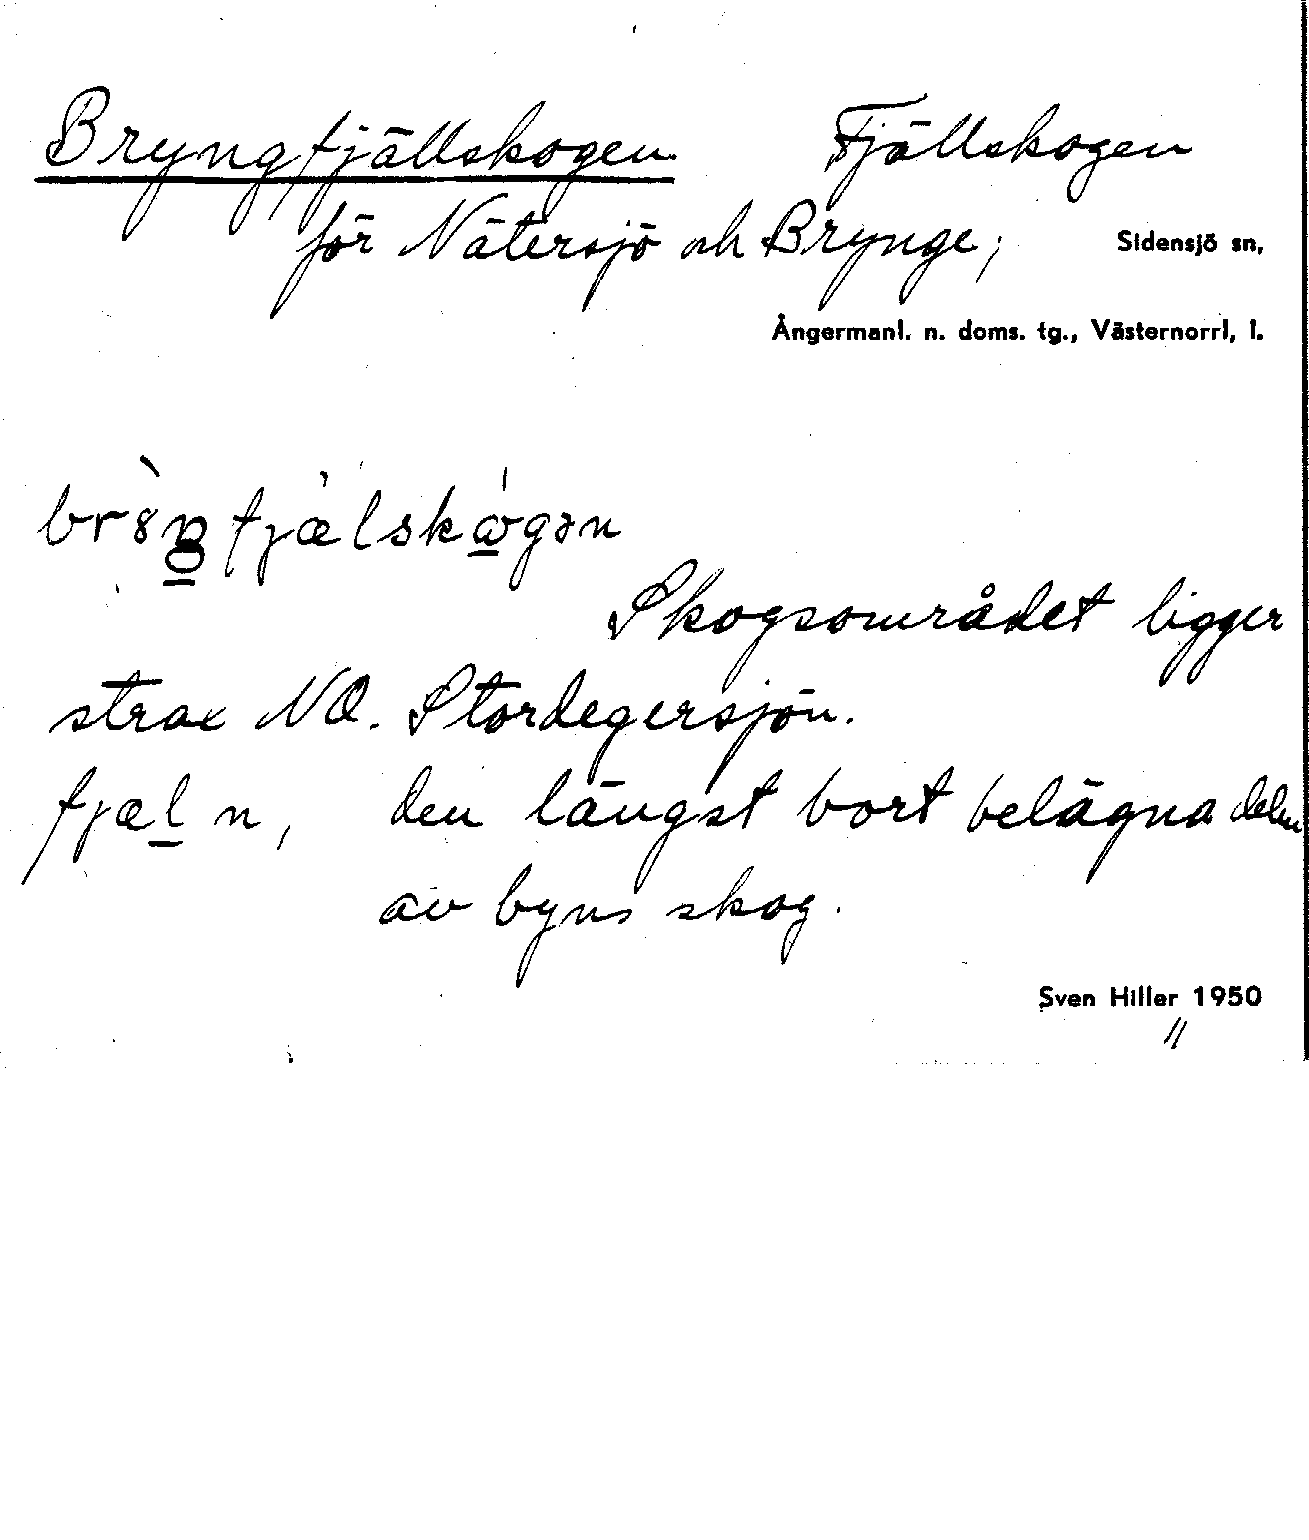 Bryngfjällskogen Fjällskogen
för Nätersjö och Brynge, Sidensjö sn,
Ångermanl. n. doms. tg., Västernorrl, l.
fjælskògən
Skogsområdet ligger
strax NO. Stordegersjön.
fjæl n, den längst bort belägna delen
av byns skog.
Sven Hiller 1950
//